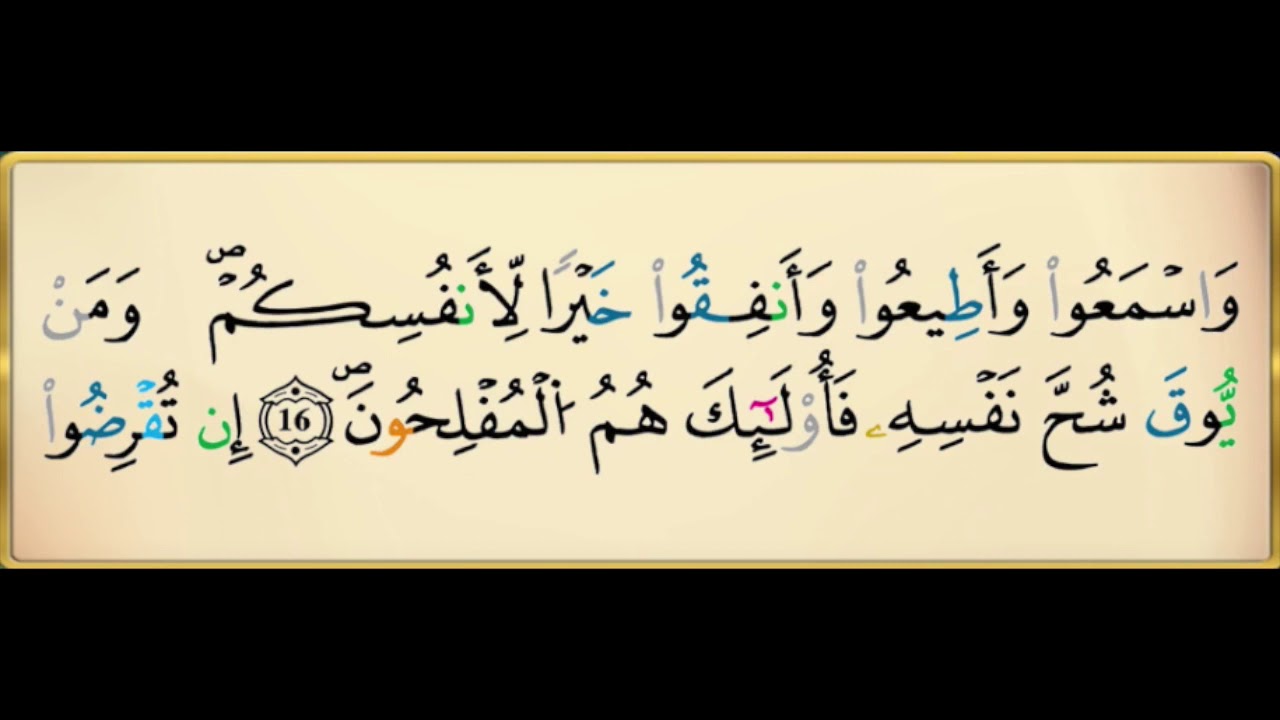 وَاسْمَعُوا۟ وَأَطِيعُوا۟ وَأَنفِقُوا۟ خَيْرًا لِّأَنفُسِكُمْ ۗ وَمَنْ
يُّوقَ شُحَّ نَفْسِهِۦ فَأُو۟لَٰٓئِكَ هُمُ الْمُفْلِحُونَ ۝16 إِن تُقْرِضُوا۟